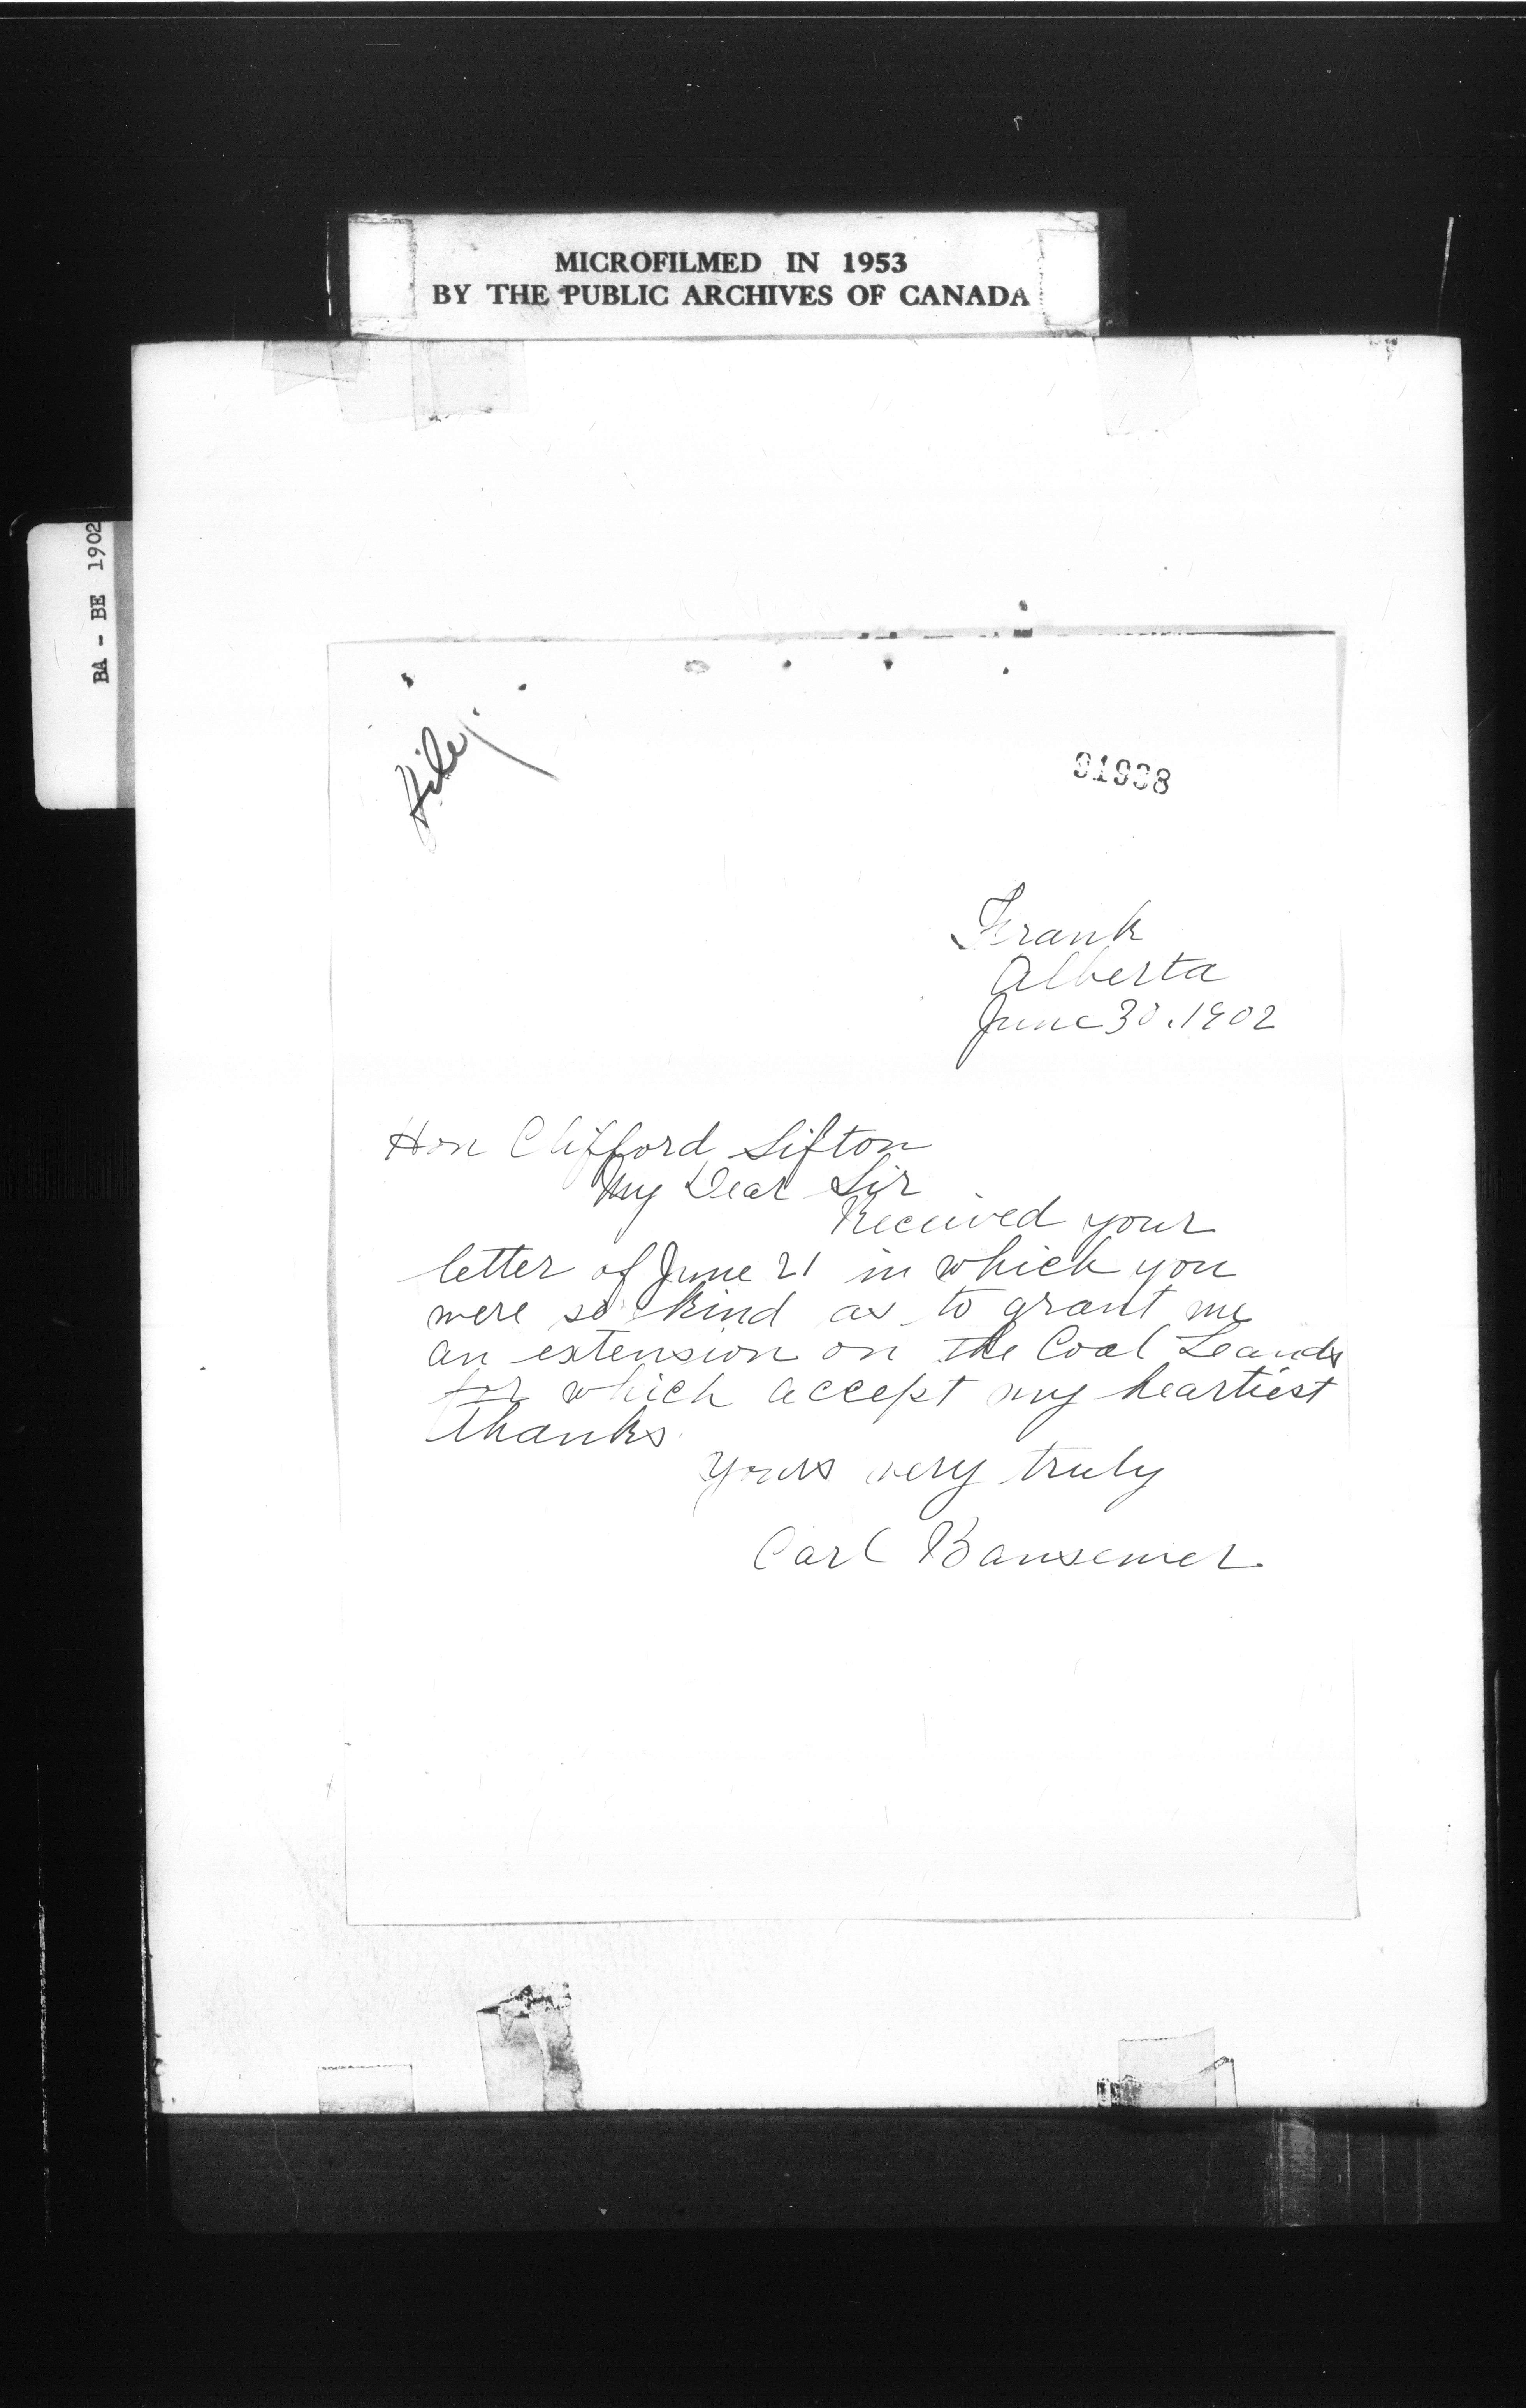 MICROFILMED IN 1953
BY THE PUBLIC ARCHIVES OF CANADA
BA - BE 1902
File
91998
Frank
Alberta
June 30. 1902
Hon Clifford Sifton
My Dear Sir
Received your
letter of June 21 in which you
were so kind as to grant me
an extension on the Coal Leands
for which accept my heartiest
thanks
Yours very truly
Carl Bansemer